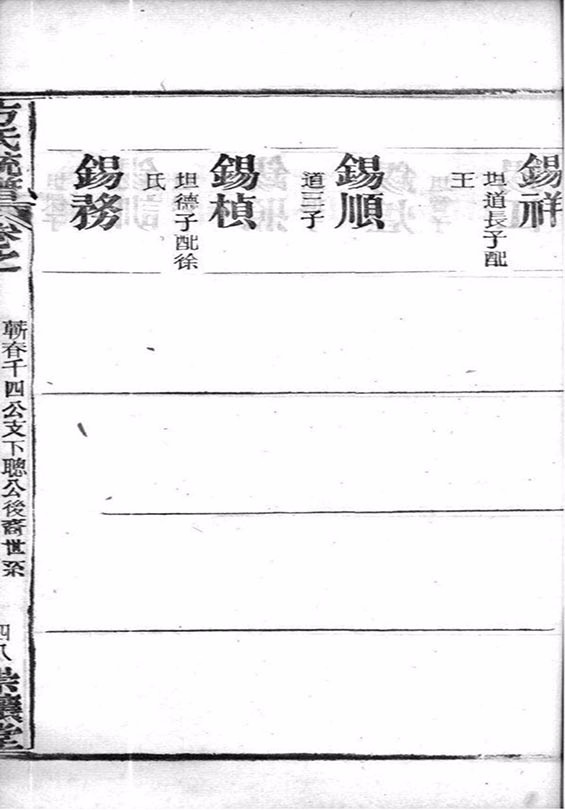 錫祥
坦道長子配
王
錫順
道三子
錫楨
坦德子配徐
氏
錫務
方氏統譜
卷之
蘄春千四公支下聰公後裔世系
四八